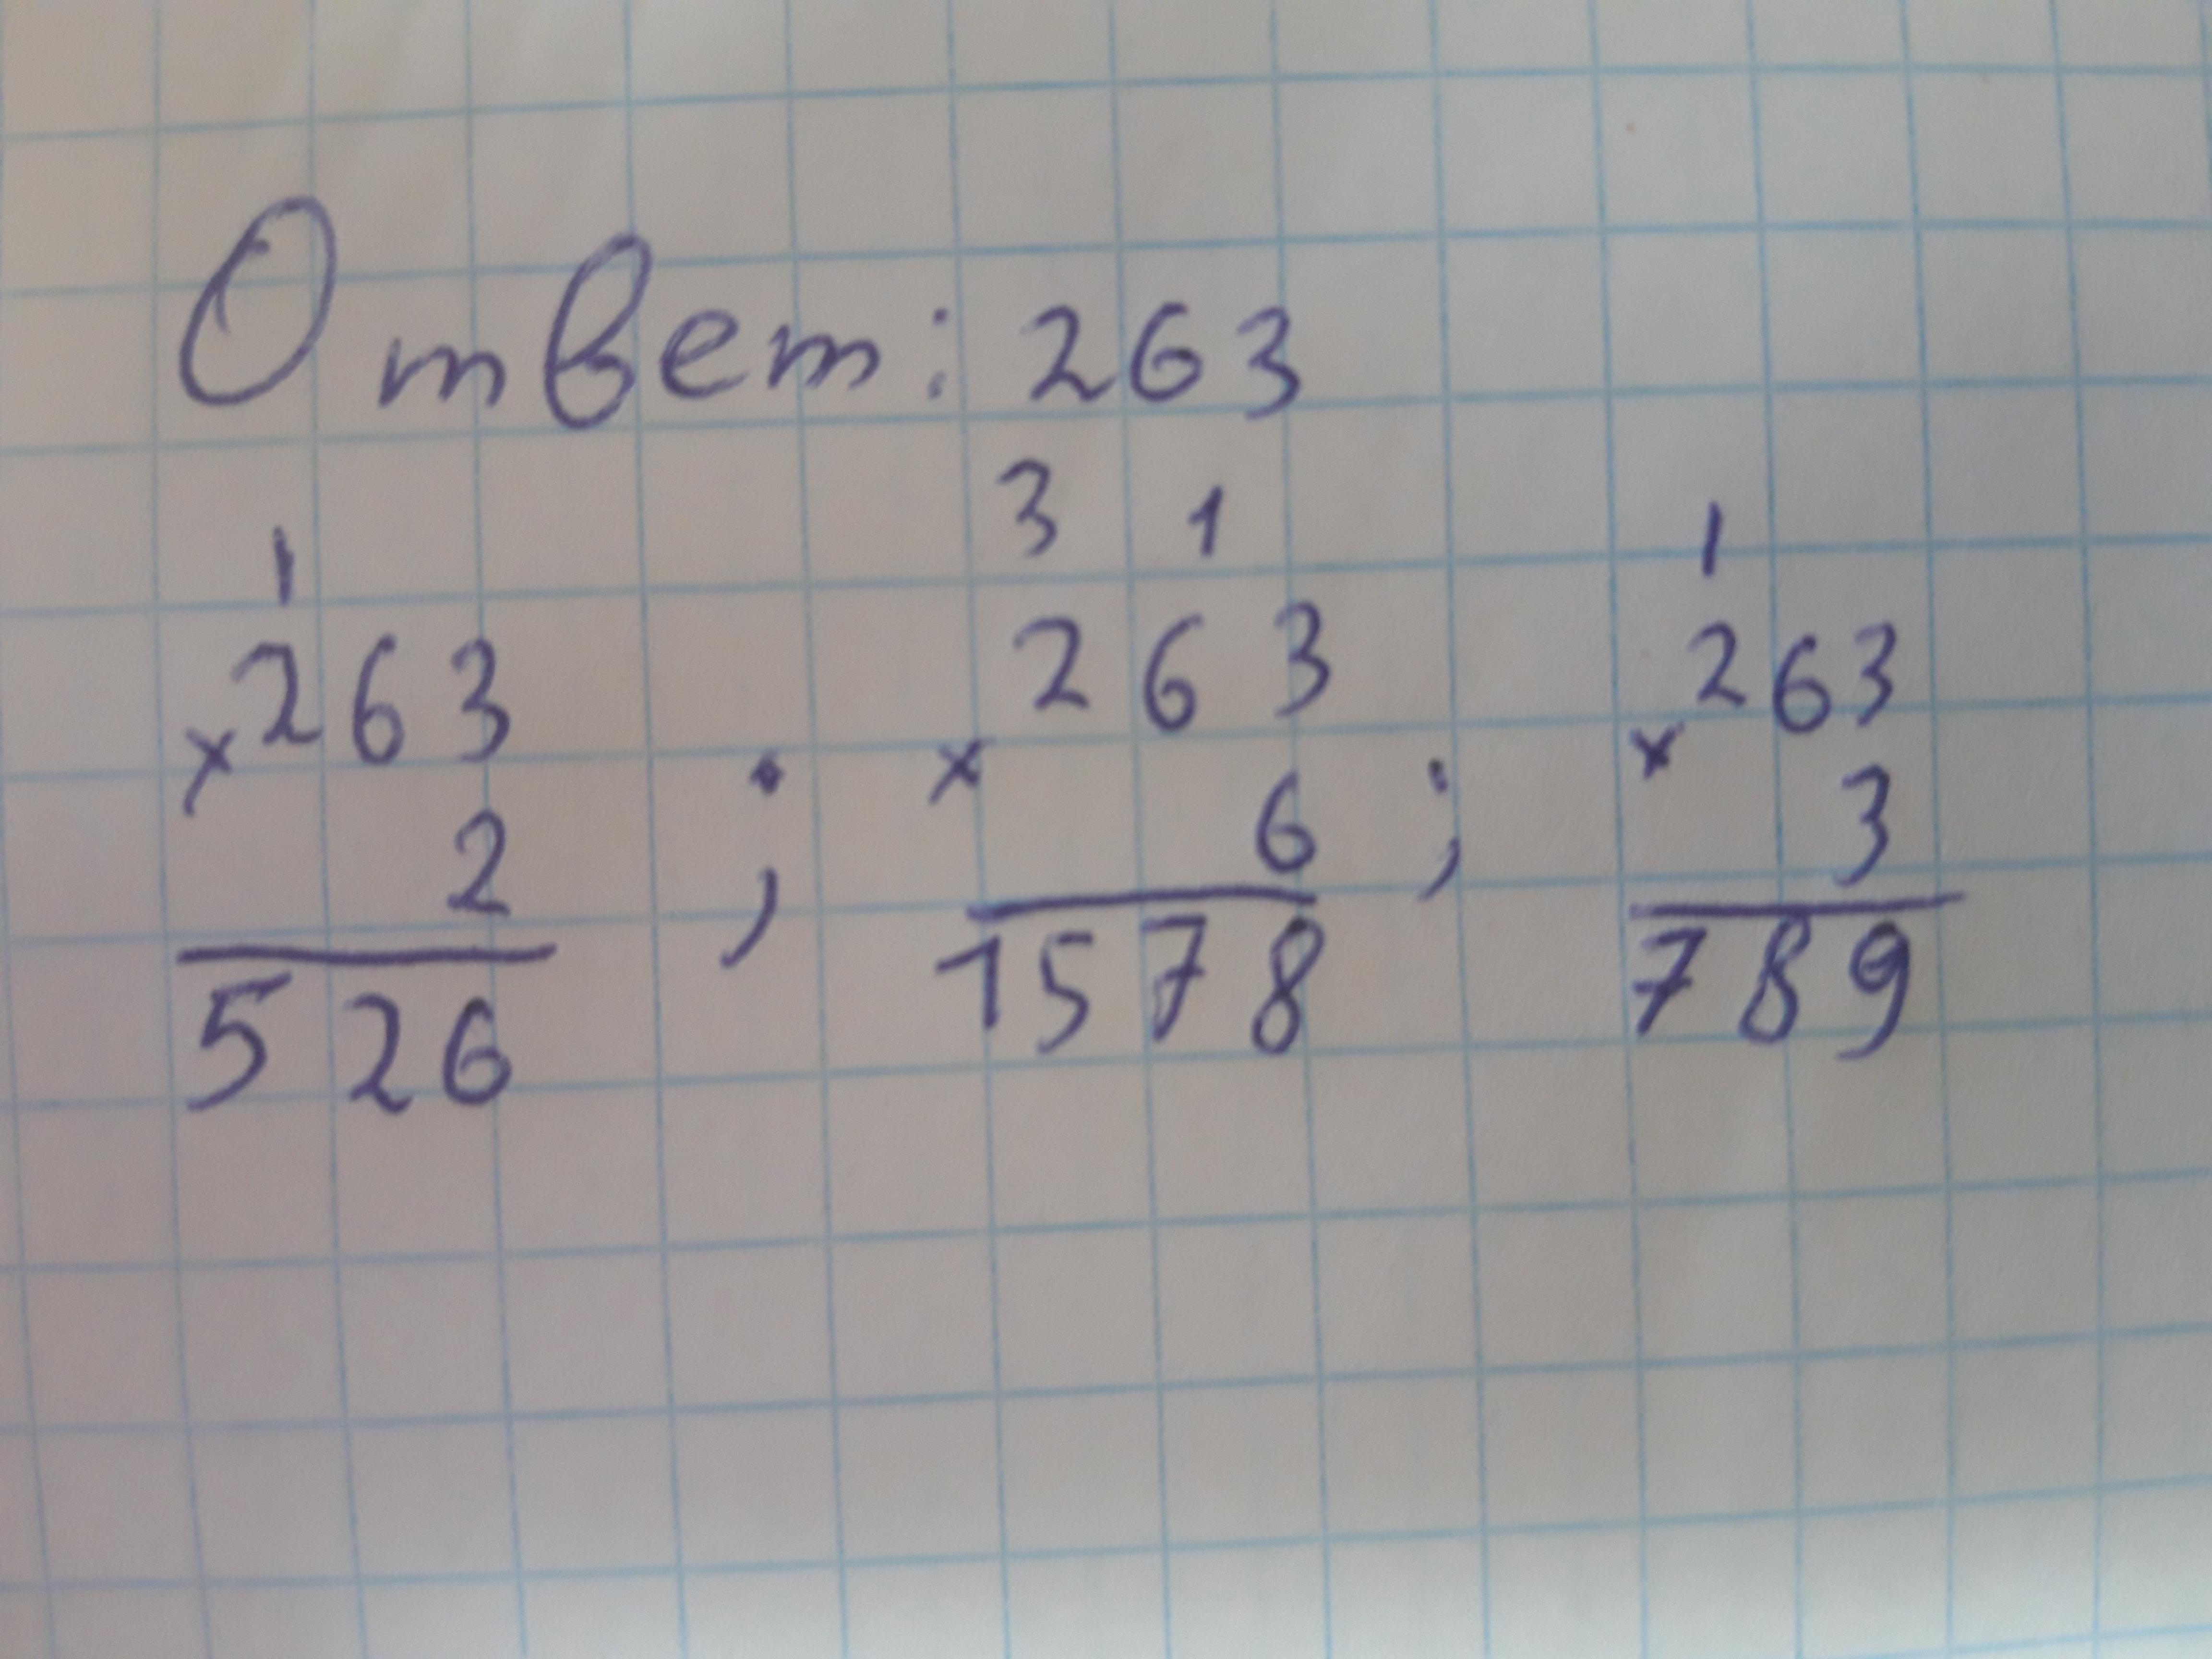 Ответ: 263
1 3 1 1
263 263 263
× ; × ; ×
2 6 3
526 1578 789